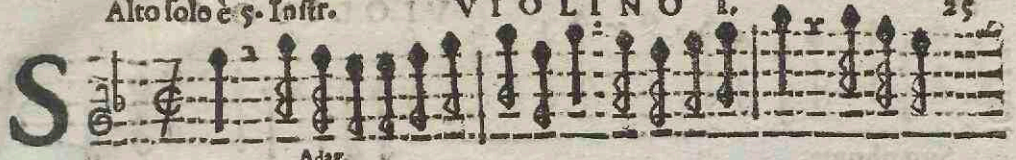 Alto solo è 5. Instr. VIOLINO I. 25
S
Adag.